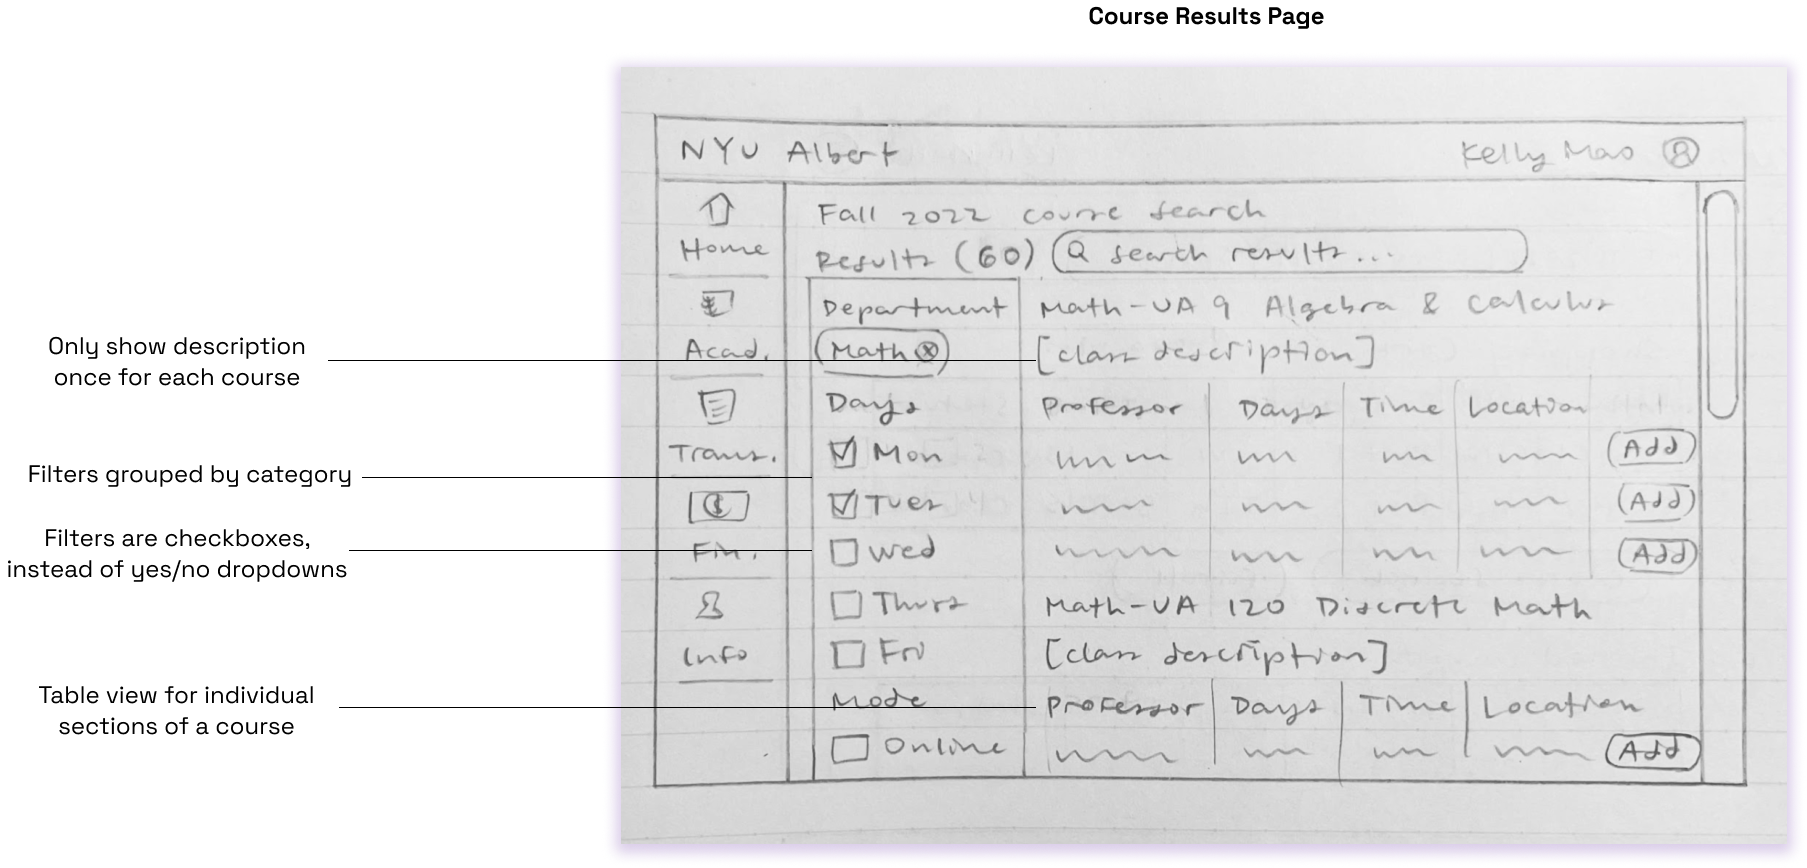 Course Results Page
NYU Albert
Kelly Mao
Home
Acad.
Trans.
Fin.
Info
Fall 2022 course search
Results (60)
search results...
Department
Math
Days
Mon
Tues
Wed
Thurs
Fri
Mode
Online
Math-UA 9 Algebra & Calculus
[class description]
Professor Days Time Location
Add
Add
Add
Math-UA 120 Discrete Math
[class description]
Professor Days Time Location
Add
Only show description
once for each course
Filters grouped by category
Filters are checkboxes,
instead of yes/no dropdowns
Table view for individual
sections of a course